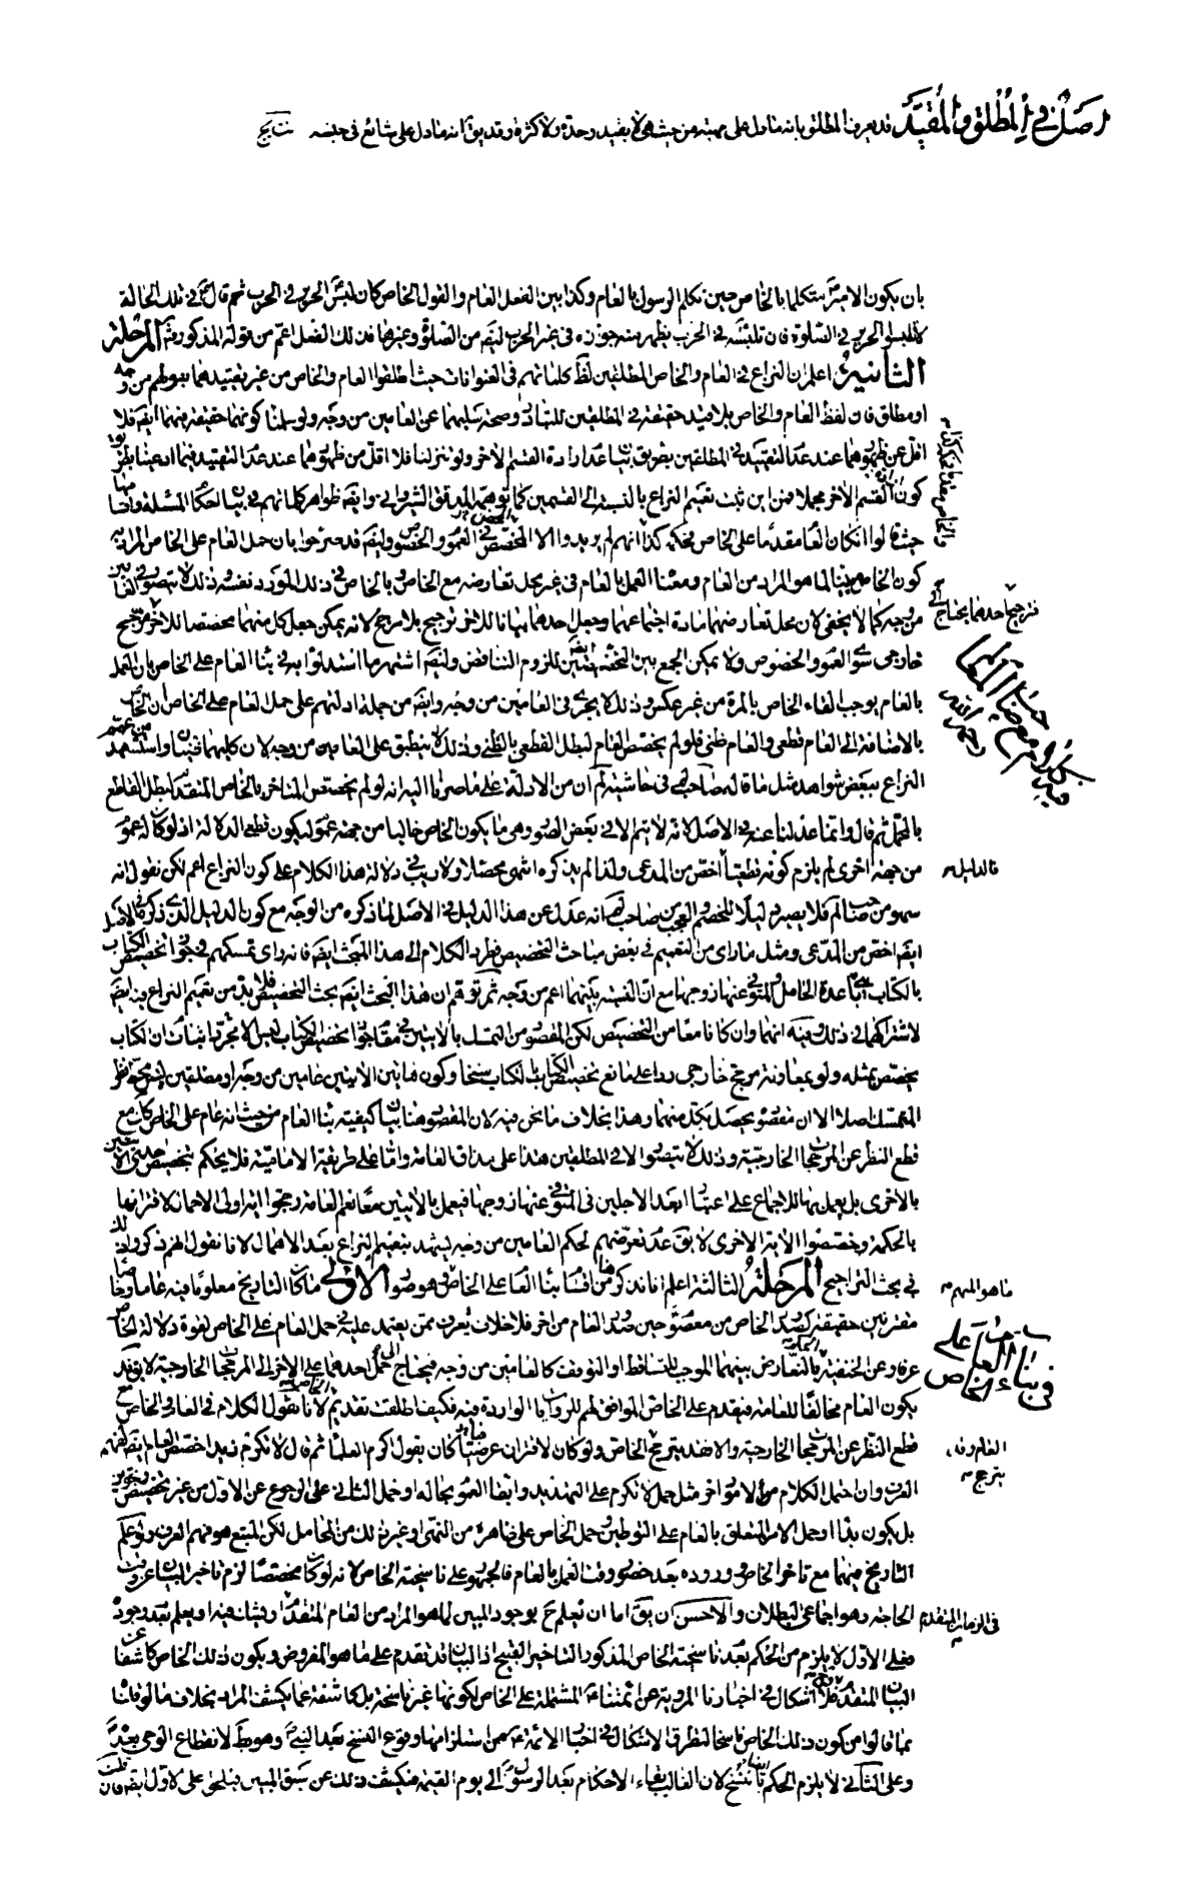 اصل في المطلق والمقيّد قد يعرف المطلق بانه ما دل على مهيته من حيث هي لا بقيد وحدة ولا كثرة وقد يق انه ما دل على شائع في جنسه نتايج
بان يكون الامير متكلما بالخاص حين تكلم الرسول بالعام وكذا بين الفعل العام والقول الخاص كان لبس الحرير في الحرب ثم قال في تلك الحالة
لا تلبسوا الحرير في الصلوة فان تلبسه في الحرب يظهر منه جوازه في غير الحرب ايضا من الصلوة وغيرها فذلك الفعل اعم من قوله المذكور المرحلة
الثانية اعلم ان النزاع في العام والخاص المطلقين لظ كلماتهم في العنوانات حيث اطلقوا العام والخاص من غير تقييدهما بقولهم من وجه
او مطلق فان لفظ العام والخاص بلا قيد حقيقة في المطلقين للتبادر وصحة سلبهما عن العامين من وجه ولو سلمنا كونهما حقيقة فيهما ايضا فلا
اقل من ظهورهما عند عدم التقييد في المطلقين بطريق بيان عدم ارادة القسم الاخر ولو تنزلنا فلا اقل من ظهورهما عند عدم التقييد فيما ادعينا
كون القسم الاخر مجملا فمن اين ثبت تعميم النزاع بالنسبة الى القسمين كما توهمه المدقق الشيرواني وايضا ظواهر كلماتهم في بيان احكام المسئلة
حيث قالوا ان كان العام مقدما على الخاص فحكمه كذا انهم لم يريدوا الا المخصص في العموم والخصوص وايضا قد صرحوا بان حمل العام على الخاص المراد به
كون الخاص مبينا لما هو المراد من العام ومعنا العمل بالعام في غير محل تعارضه مع الخاص وبالخاص في ذلك المورد نفسه وذلك لا يتصور في العامين
من وجه كما لا يخفى لان محل تعارضهما مادة اجتماعهما وجعل احدهما بيانا للاخر ترجيح بلا مرجح لانه يمكن جعل كل منهما مخصصا للاخر
خارجي سوى العموم والخصوص ولا يمكن الجمع بين التخصيصين للزوم التناقض وايضا اشتهر ما استدلوا به في بناء العام على الخاص بان العمل
بالعام يوجب الغاء الخاص بالمرة من غير عكس وذلك لا يجري في العامين من وجه وايضا من جملة ادلتهم على حمل العام على الخاص ان الخاص
بالاضافة الى العام قطعي والعام ظني فلو لم يخصص العام لبطل القطعي بالظني وذلك لا ينطبق على العامين من وجه لان كليهما ظنيان واستشهد
النزاع ببعض شواهد مثل ما قاله صاحب في حاشية لم ان من الادلة على ما صرنا اليه انه لو لم يخصص المتاخر بالخاص المتقدم لبطل القاطع
بالمحتمل ثم قال وانما عدلنا عنه في الاصل لانه لا يتم الا في بعض الصور وهي ما يكون الخاص خاليا من جهة عموم ليكون قطعي الدلالة اذ لو كان له عموم
من جهة اخرى لم يلزم كونه قطعيا اخص من المدعى ولذا لم يذكره انتهى محصلا ولا ريب في دلالة هذا الكلام على كون النزاع اعم لكن نقول انه
سهو من صاحب لم فلا يصير دليلا للخصم والعجب من صاحب انه عدل عن هذا الدليل في الاصل لما ذكره من الوجه مع كون الدليل الذي ذكره في الاصل
ايضا اخص من المدعى ومثل ما راى من التعميم في بعض مباحث التخصيص فطرد الكلام الى هذا المبحث ايضا فانه راى تمسكهم في جواز تخصيص الكتاب
بالكتاب عدة الحامل والمتوفى عنها زوجها مع ان النسبة بينهما اعم من وجه ثم توهم ان هذا البحث ايضا بحث التخصيص فلا بد من تعميم النزاع فيه ايضا
لاشتراكهما في ذلك وفيه انهما وان كانا معا من التخصيص لكن المقصود من التمسك بالايتين في مقام جواز تخصيص الكتاب ليس الا مجرد اثبات ان الكتاب
يخصص بمثله ولو بمعاونة مرجح خارجي ردا على مانع تخصيص الكتاب بالكتاب وكون هاتين الايتين عامين من وجه او مطلقين ليس محط نظر
المتمسك اصلا الا ان مقصوده يحصل بكل منهما وهذا بخلاف ما نحن فيه لان المقصود هنا بيان كيفية بناء العام من حيث انه عام على الخاص كان مع
قطع النظر عن المرجحات الخارجية وذلك لا يتصور الا في المطلقين هذا على مذاق العامة واما على طريقة الامامية فلا يحكم بتخصيص احدى الايتين
بالاخرى بل يعمل بهما للاجماع على اعتبار ابعد الاجلين في المتوفى عنها زوجها فيعمل بالايتين معا نعم العامة رجحوا اية اولى الاحمال لاقترانها
بالحكمة وخصصوا الاية الاخرى لا يق عدم تعرضهم لحكم العامين من وجه يشهد بتعميم النزاع بعد الاهمال لانا نقول انهم ذكروا ذلك
في بحث التراجيح المرحلة الثالثة اعلم انا نذكر هنا اقسام بناء العام على الخاص وهو صور الاولى ما كان التاريخ معلوما فيه عاما وخاصا
مقترنين حقيقة كصدور الخاص من معصوم حين صدور العام من اخر فلا خلاف يعرف ممن يعتمد عليه في حمل العام على الخاص لقوة دلالة الخاص
عرفا وعن الحنفية بالتعارض بينهما الموجب للتساقط او التوقف كالعامين من وجه فيحتاج حمل احدهما على الاخر الى المرجحات الخارجية لا يق قد
يكون العام مخالفا للعامة فيقدم على الخاص الموافق لهم للروايات الواردة فيه فكيف اطلقت تقديم لانا نقول الكلام في العام والخاص مع
قطع النظر عن المرجحات الخارجية والا فقد يترجح الخاص ولو كان الاقتران عرفيا كان يقول اكرم العلماء ثم قال لا تكرم زيدا اختص العام ايضا لفهم
العرف وان احتمل الكلام من الامور اخر مثل حمل لا تكرم على التهديد وابقاء العموم بحاله او حمل الثاني على الرجوع عن الاول من غير تخصيص
بل يكون بداء او حمل الامر المتعلق بالعام على التوطين وحمل الخاص على ظاهره من النهي او غير ذلك من المحامل لكن المتبع هو فهم العرف ولو علم
التاريخ فيهما مع تاخر الخاص وورده بعد حضور وقت العمل بالعام فالجمهور على ناسخية الخاص لانه لو كان مخصصا لزم تاخير البيان عن وقت
الحاجة وهو اجماعي البطلان والاحسن ان يق اما ان نعلم ح بوجود المبين لما هو المراد من العام المتقدم او نشك فيه او يعلم بعدم وجوده
فعلى الاول لا يلزم من الحكم بعدم ناسخية الخاص المذكور التاخير القبيح اذ البيان قد تقدم على ما هو المفروض ويكون ذلك الخاص كاشفا عن
البيان المتقدم فلا اشكال في اخبارنا المروية عن ائمتنا المشتملة على الخاص لكونها غير ناسخة بل كاشفة عما يكشف المراد بخلاف ما لو قلنا
بما قالوا من كون ذلك الخاص ناسخا لتطرق الاشكال في اخبار الائمة من استلزامها وقوع النسخ بعد النبي وهو بط لانقطاع الوحي بعده
وعلى الثاني لا يلزم الحكم بالنسخ لان الغالب بقاء الاحكام بعد الرسول الى يوم القيمة فيكشف ذلك عن سبق المبين فيلحق على الاول ايضا فان قلت
ترجيح احدهما يحتاج
فيه كلام مع صاحب المعالم
رحمه الله
فالدليل
ما هو المهم
في بيان بناء العام على الخاص
العام وقد
يترجح
في الزمان المتقدم